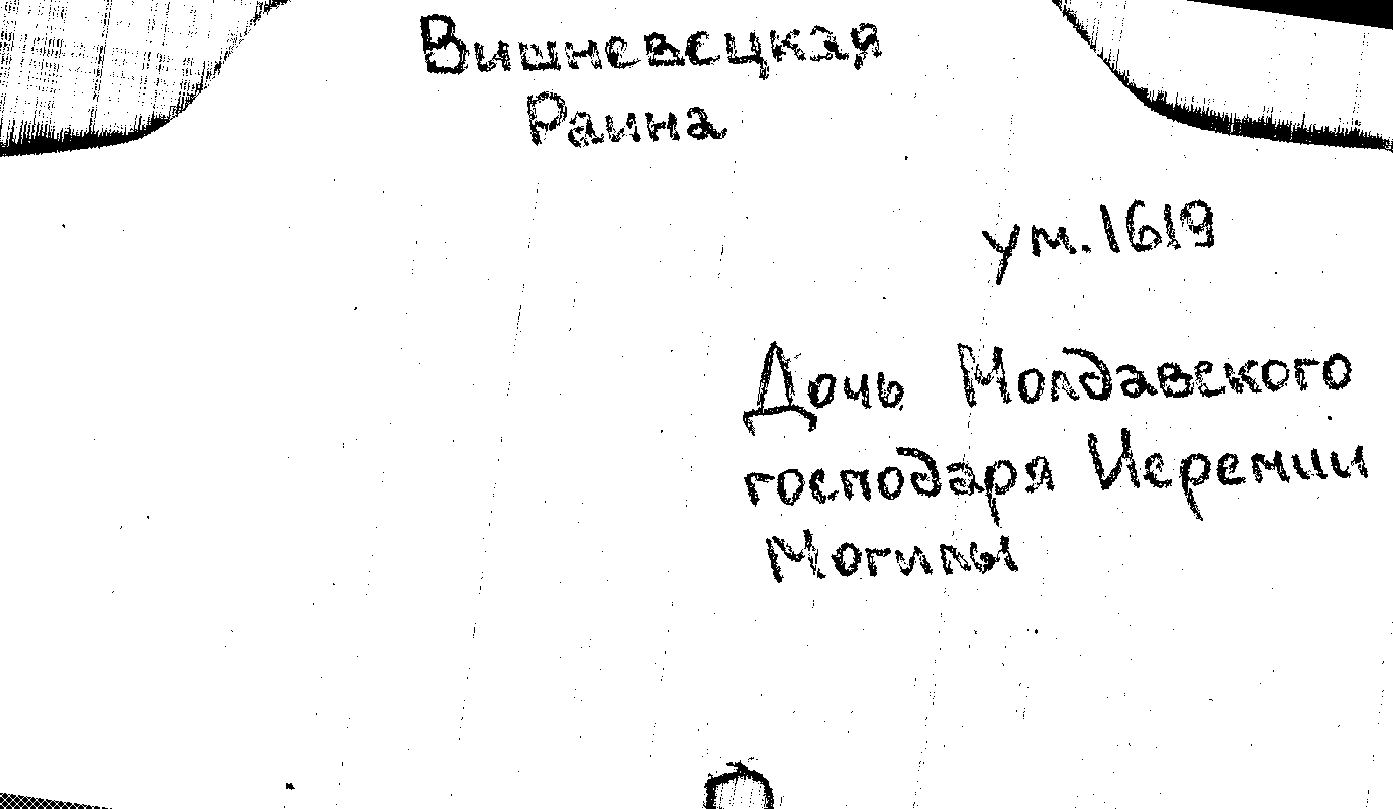 Вишневецкая
Раина
ум. 1619
Дочь Молдавского
господаря Иеремии
Могилы